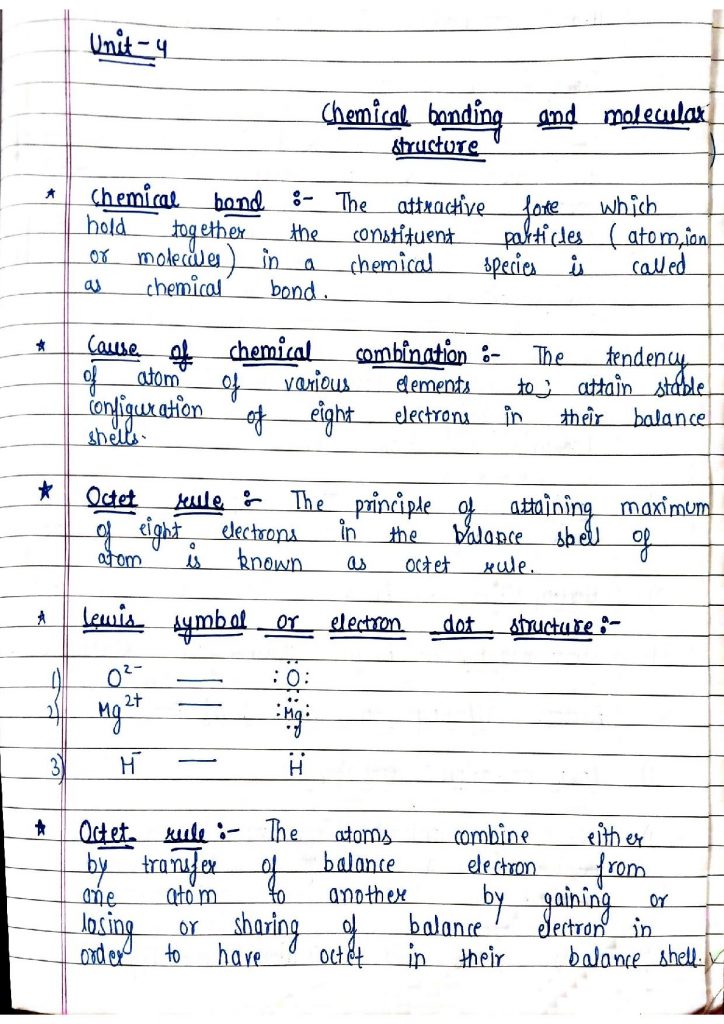 Unit - 4
Chemical bonding and molecular
structure
* Chemical bond :- The attractive force which
hold together the constituent particles (atom, ion
or molecules) in a chemical species is called
as chemical bond.
* Cause of chemical combination :- The tendency
of atom of various elements to ; attain stable
configuration of eight electrons in their balance
shells.
* Octet rule :- The principle of attaining maximum
of eight electrons in the balance shell of
atom is known as octet rule.
* Lewis symbol or electron dot structure :-
1) O²⁻ — :Ö:
2) Mg²⁺ — :Mg:
3) H⁻ — Ḧ
* Octet rule :- The atoms combine either
by transfer of balance electron from
one atom to another by gaining or
losing or sharing of balance electron in
order to have octet in their balance shell.